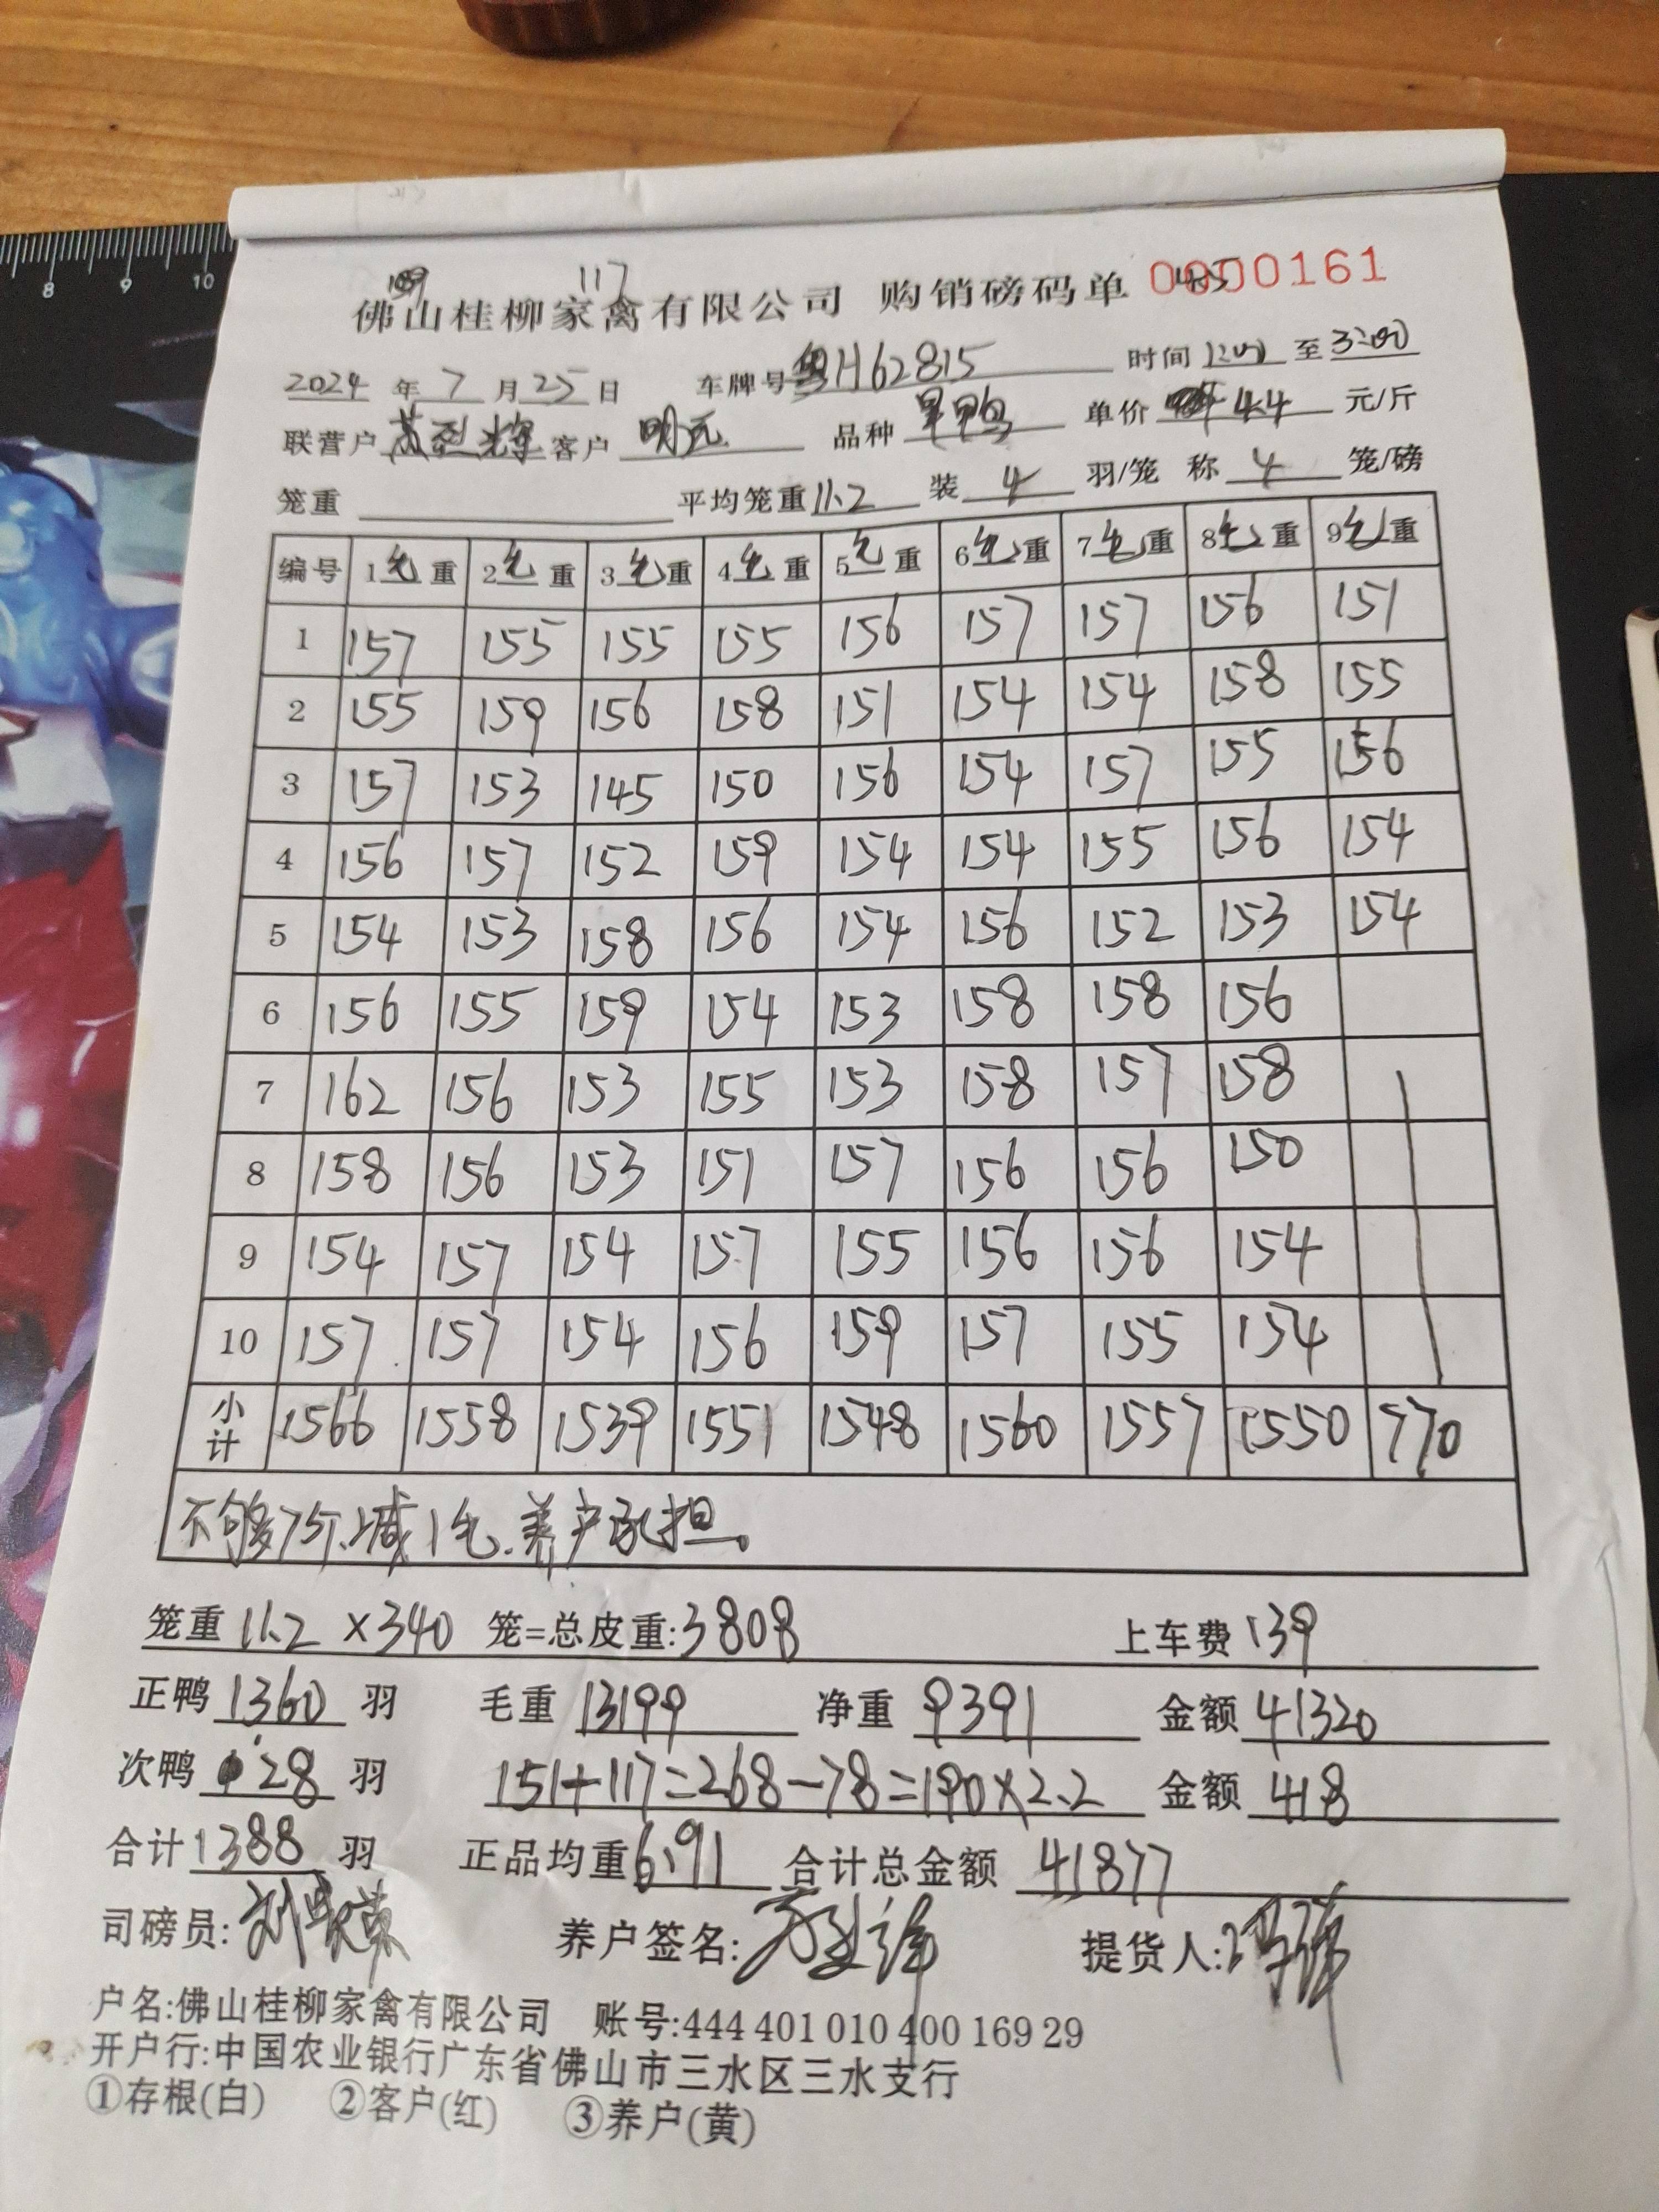 8 9 10
159 117 45
佛山桂柳家禽有限公司 购销磅码单 0000161
2024 年 7 月 25 日 车牌号 粤H62815 时间 1:00 至 3:00
联营户 苏烈光 客户 明远 品种 单鸭 单价 4.4 元/斤
笼重 平均笼重 11.2 装 4 羽/笼 称 4 笼/磅
编号 1毛重 2毛重 3毛重 4毛重 5毛重 6毛重 7毛重 8毛重 9毛重
1 157 155 155 155 156 157 157 156 151
2 155 159 156 158 151 154 154 158 155
3 157 153 145 150 156 154 157 155 156
4 156 157 152 159 154 154 155 156 154
5 154 153 158 156 154 156 152 153 154
6 156 155 159 154 153 158 158 156
7 162 156 153 155 153 158 157 158
8 158 156 153 151 157 156 156 150
9 154 157 154 157 155 156 156 154
10 157 157 154 156 159 157 155 154
小计 1566 1558 1539 1551 1548 1560 1557 1550 770
不够7斤、减1毛.养户承担。
笼重 11.2 ×340 笼=总皮重:3808 上车费 139
正鸭 1360 羽 毛重 13199 净重 9391 金额 41320
次鸭 28 羽 151+117=268-78=190×2.2 金额 418
合计 1388 羽 正品均重 6.91 合计总金额 41877
司磅员: 养户签名: 提货人:
户名:佛山桂柳家禽有限公司 账号:444 401 010 400 169 29
开户行:中国农业银行广东省佛山市三水区三水支行
①存根(白) ②客户(红) ③养户(黄)